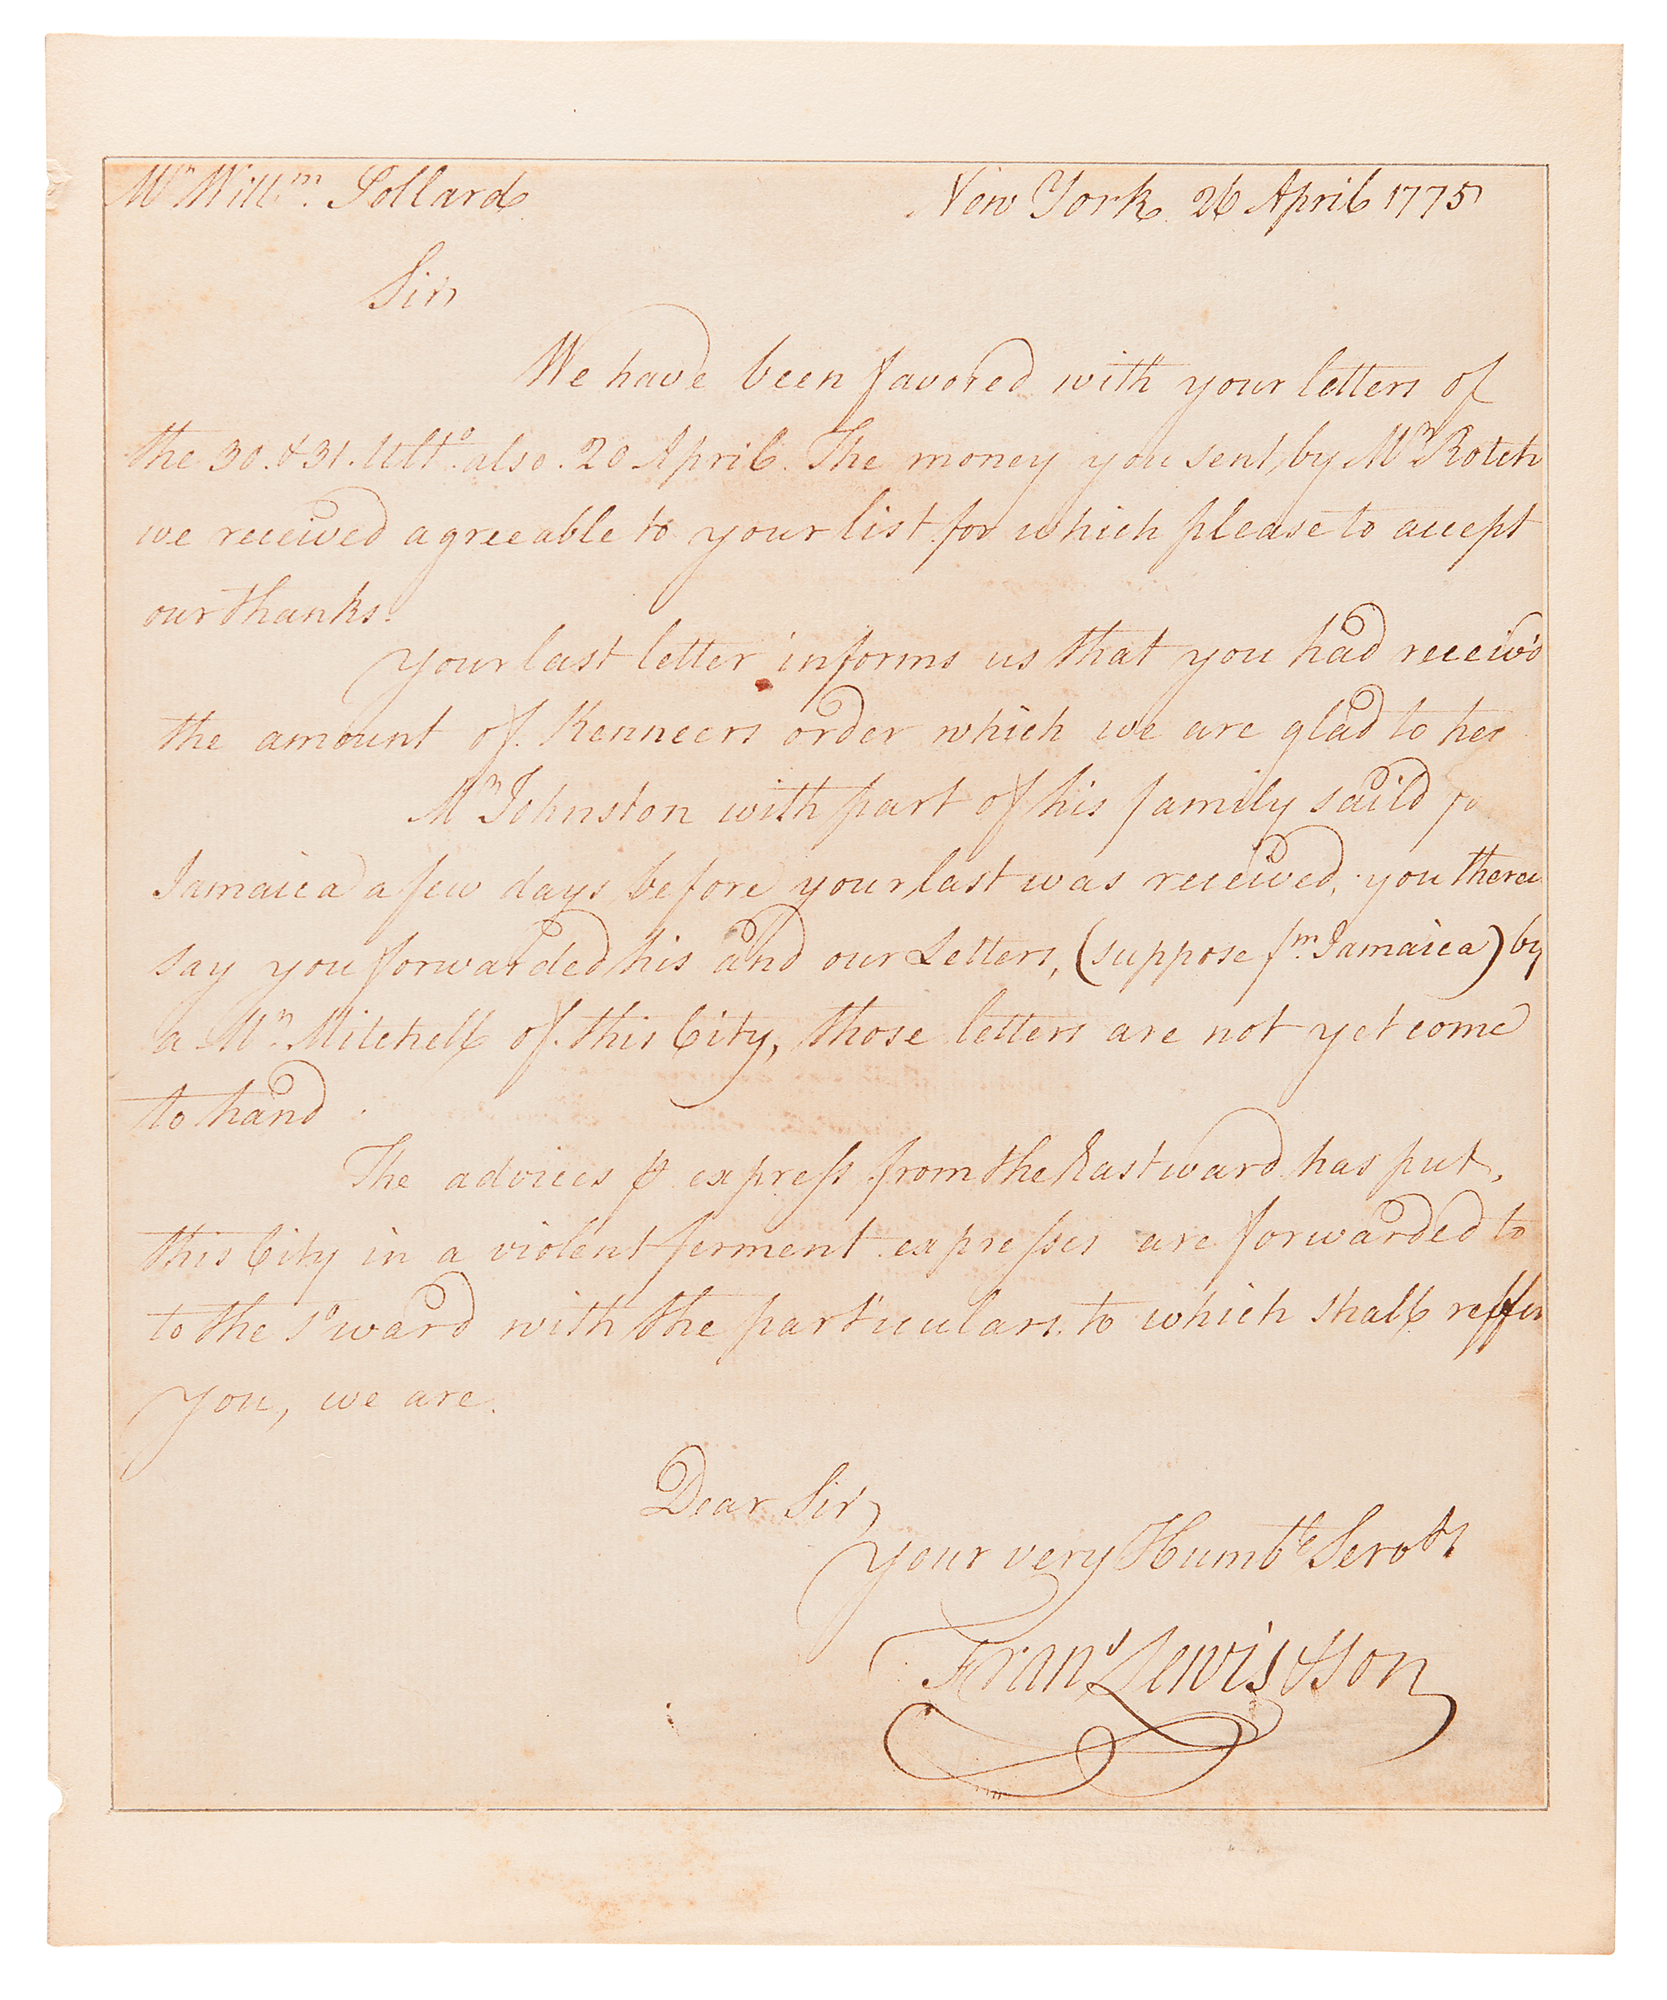 Mr Willm. Pollard
New York 26 April 1775
Sir
We have been favored with your letters of
the 30. & 31. Ulto. also. 20 April. The money you sent by Mr Rotch
we received agreeable to your list for which please to accept
our thanks.
Your last letter informs us that you had receiv'd
the amount of Kenneers order which we are glad to hea
Mr Johnston with part of his family sail'd fo
Jamaica a few days before your last was received, you therei
say you forwarded his and our Letters, (suppose fm. Jamaica) by
a Mr. Mitchell of this City, those letters are not yet come
to hand.
The advices ⅌ express from the Eastward has put
this City in a violent ferment. expresses are forwarded to
to the So ward with the particulars. to which shall reffer
You, we are.
Dear Sir
Your very Humble Servts
Frans Lewis & Son